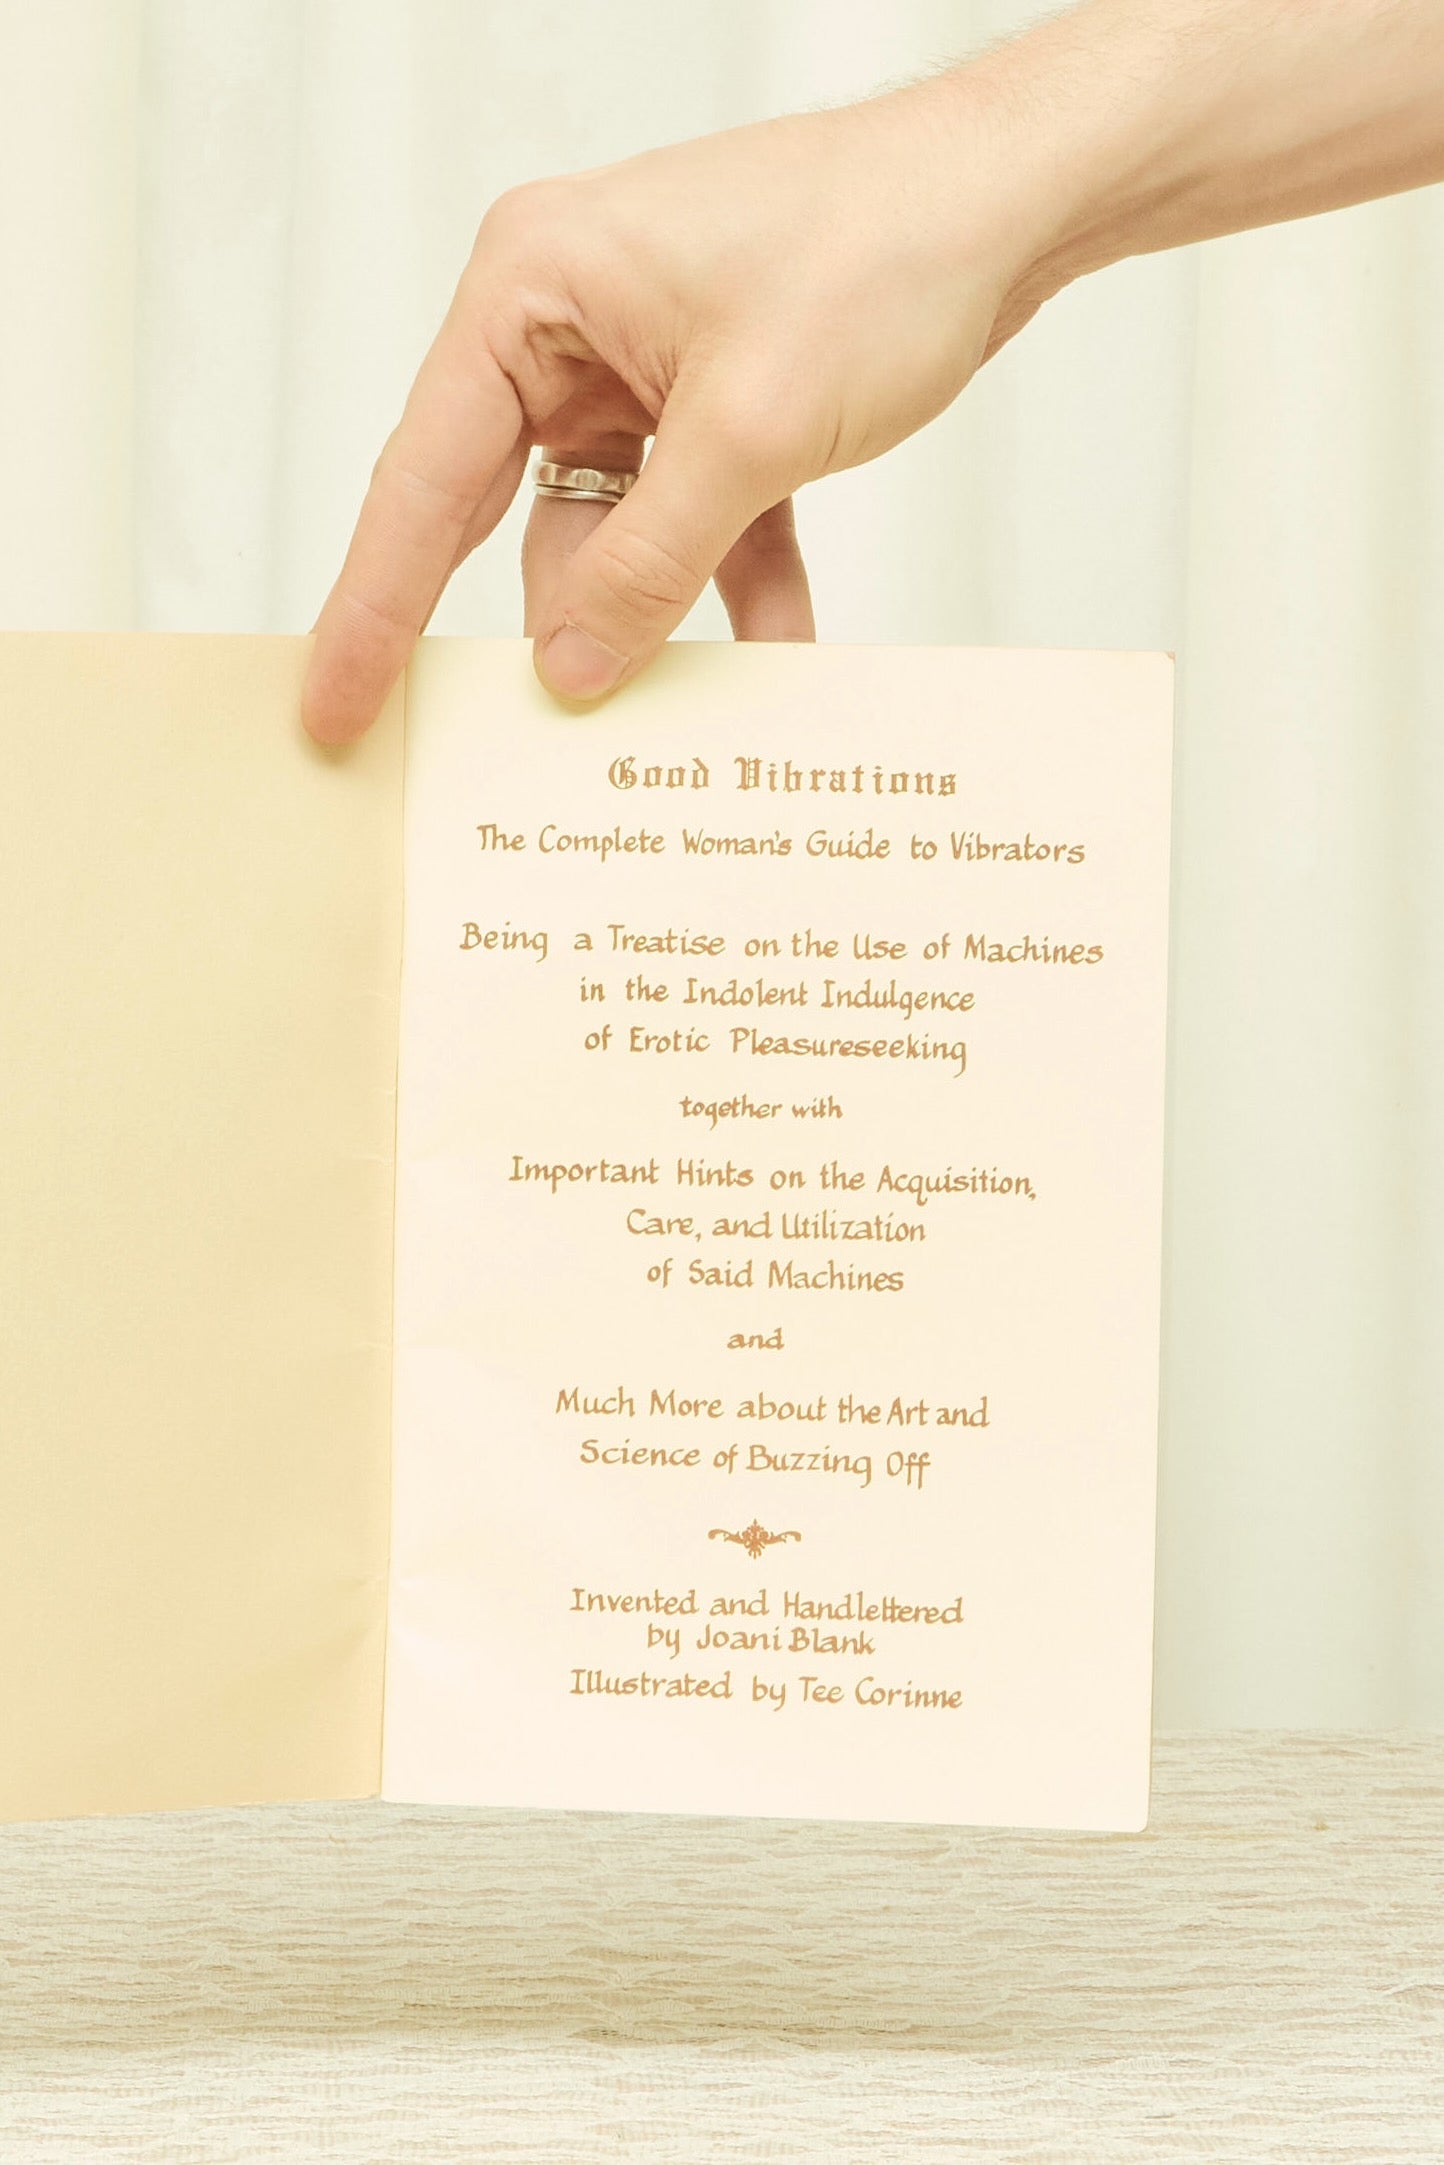 Good Vibrations
The Complete Woman's Guide to Vibrators
Being a Treatise on the Use of Machines
in the Indolent Indulgence
of Erotic Pleasureseeking
together with
Important Hints on the Acquisition,
Care, and Utilization
of Said Machines
and
Much More about the Art and
Science of Buzzing Off
Invented and Handlettered
by Joani Blank
Illustrated by Tee Corinne